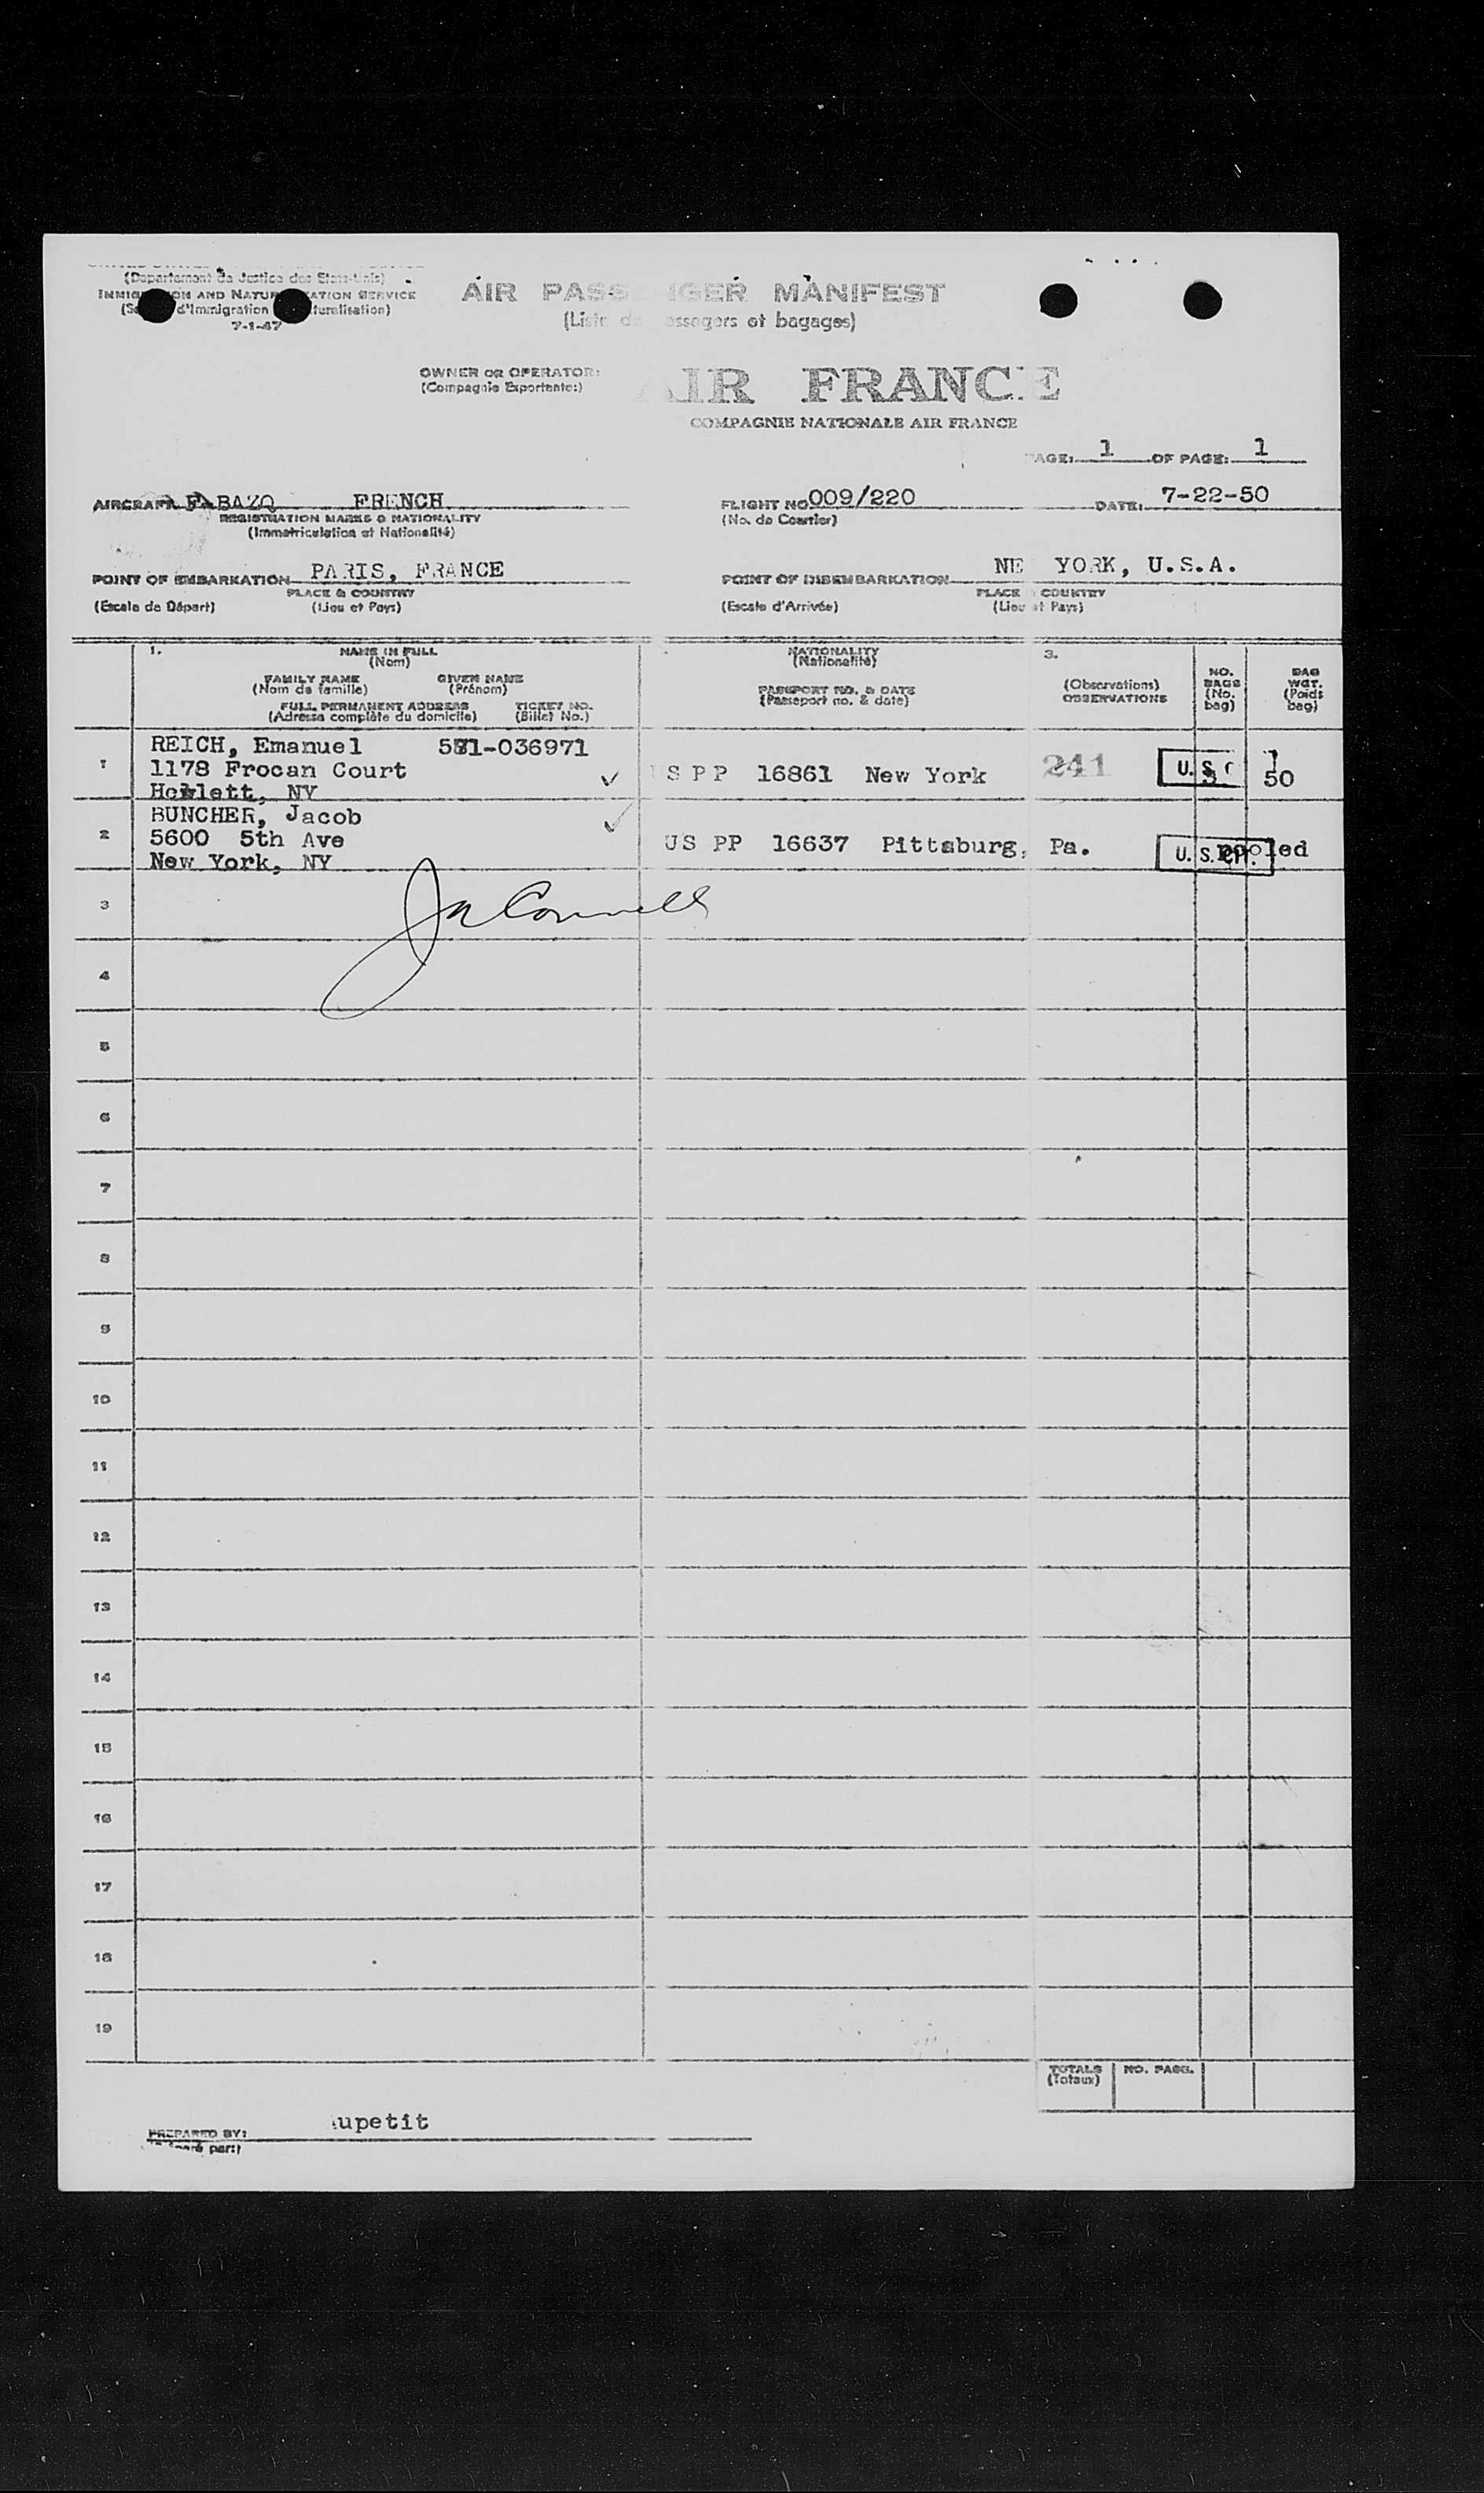 (Departement de Justice des Etats-Unis)
IMMIGRATION AND NATURALIZATION SERVICE
(Service d'Immigration et Naturalisation)
7-1-47
AIR PASSENGER MANIFEST
(Liste de passagers et bagages)
OWNER OR OPERATOR:
(Compagnie Exportante:)
AIR FRANCE
COMPAGNIE NATIONALE AIR FRANCE
PAGE: 1 OF PAGE: 1
AIRCRAFT F BAZQ FRENCH
REGISTRATION MARKS & NATIONALITY
(Immatriculation et Nationalité)
FLIGHT NO. 009/220
(No. de Courrier)
DATE: 7-22-50
POINT OF EMBARKATION PARIS, FRANCE
PLACE & COUNTRY
(Escale de Départ) (Lieu et Pays)
POINT OF DISEMBARKATION NE YORK, U.S.A.
PLACE COUNTRY
(Escale d'Arrivée) (Lieu et Pays)
1. NAME IN FULL
(Nom)
FAMILY NAME GIVEN NAME
(Nom de famille) (Prénom)
FULL PERMANENT ADDRESS TICKET NO.
(Adresse complète du domicile) (Billet No.)
NATIONALITY
(Nationalité)
PASSPORT NO. & DATE
(Passeport no. & date)
3.
(Observations)
OBSERVATIONS
NO.
BAGS
(No.
bag)
BAG
WGT.
(Poids
bag)
1
REICH, Emanuel 581-036971
1178 Frocan Court
Hewlett, NY
US PP 16861 New York 241 U.S.C 3 50
2
BUNCHER, Jacob
5600 5th Ave
New York, NY
US PP 16637 Pittsburg, Pa. U.S.CIT. pooled
3
4
5
6
7
8
9
10
11
12
13
14
15
16
17
18
19
TOTALS NO. PASG.
(Totaux)
PREPARED BY: Aupetit
(Préparé par:)